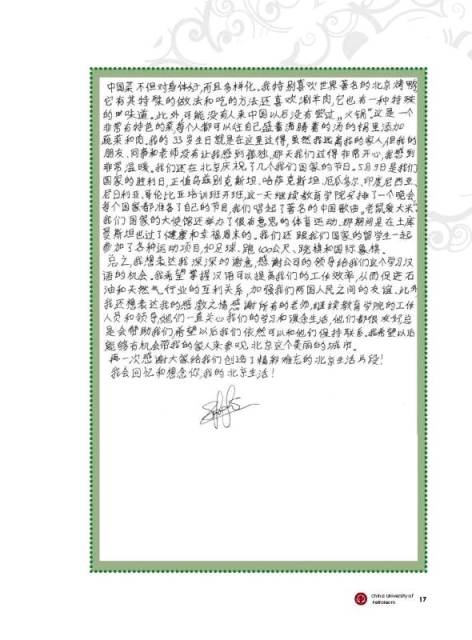 中国菜不但对身体好,而且多样化。我特别喜欢世界著名的北京烤鸭,
它有其特殊的做法和吃的方法还喜欢涮羊肉,它也有一种特殊
的口味道。此外可能没有人来中国以后没有尝过„火锅"这是一个
非常有特色的菜每个人都可以往自己盛着满腾着的汤的锅里添加
蔬菜和肉。我的33岁生日就是在这里过得,虽然我远离我的家人,但我的
朋友、同事和老师没有让我感到孤独,那天我们过得非常开心,我感到
非常温暖。我们还在北京庆祝了几个我们国家的节日。5月9日是我们
国家的胜利日,正值乌兹别克斯坦、哈萨克斯坦、厄瓜多尔、印度尼西亚、
尼日利亚、哥伦比亚培训班开班,这一天继续教育学院安排了一个晚会
每个国家都准备了自己的节目,我们唱起了著名的中国歌曲。老鼠爱大米。
我们国家的大使馆还举办了很有意思的体育运动,那期间是在土库
曼斯坦也过了健康和幸福周末的。我们还跟我们国家的留学生一起
参加了各种运动项目,如足球、跑100公尺、跳棋和国际象棋。
总之,我想表达我深深的谢意,感谢公司的领导给我们这个学习汉
语的机会。我希望掌握汉语可以提高我们的工作效率,从而促进石
油和天然气行业的互利关系,加强我们两国人民之间的友谊。此外
我还想表达我的感激之情感谢所有的老师,继续教育学院的工作
人员和领导,他们一直关心我们的学习和课余生活,他们都很友好总
是会帮助我们,希望以后我们依然可以和他们保持联系。我希望以后
能够有机会带我的家人来参观北京这个美丽的城市。
再一次感谢大家给我们创造了精彩难忘的北京生活片段!
我会回忆和想念你,我的北京生活!
China University of
Petroleum
17